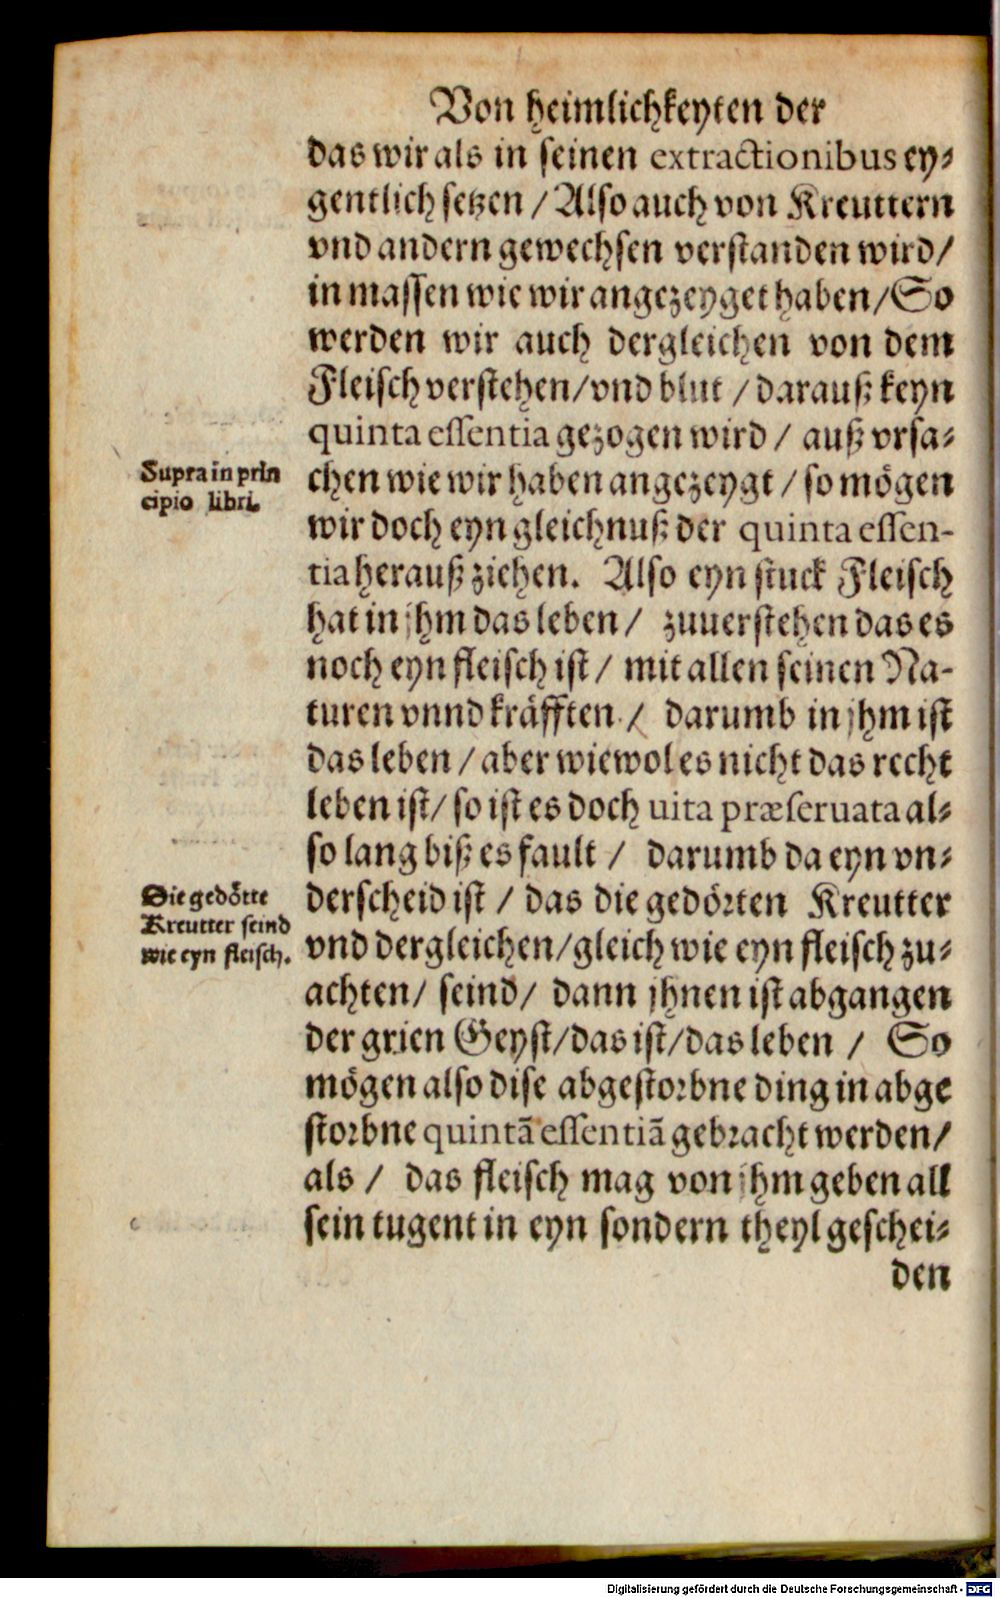 Von heimlichkeyten der
das wir als in seinen extractionibus ey⸗
gentlich setzen / Also auch von Kreuttern
vnd andern gewechsen verstanden wird/
in massen wie wir angezeyget haben/So
werden wir auch dergleichen von dem
Fleisch verstehen/vnd blut / darauß keyn
quinta essentia gezogen wird / auß vrsa⸗
chen wie wir haben angezeygt / so mögen
wir doch eyn gleichnuß der quinta essen-
tia herauß ziehen. Also eyn stuck Fleisch
hat in jhm das leben / zuuerstehen das es
noch eyn fleisch ist / mit allen seinen Na-
turen vnnd kräfften / darumb in jhm ist
das leben / aber wiewol es nicht das recht
leben ist/ so ist es doch uita præseruata al⸗
so lang biß es fault / darumb da eyn vn⸗
derscheid ist / das die gedörten Kreutter
vnd dergleichen/gleich wie eyn fleisch zu⸗
achten/ seind/ dann jhnen ist abgangen
der grien Geyst/das ist/das leben / So
mögen also dise abgestorbne ding in abge
storbne quintã essentiã gebracht werden/
als / das fleisch mag von jhm geben all
sein tugent in eyn sondern theyl geschei⸗
den
Supra in prin
cipio libri.
Die gedötte
Kreutter seind
wie eyn fleisch.
Digitalisierung gefördert durch die Deutsche Forschungsgemeinschaft - DFG